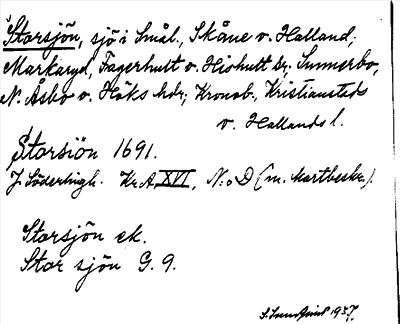 Storsjön, sjö i Smål., Skåne o. Halland;
Markaryd, Fagerhult o. Hishult sn; Sunnerbo,
N. Åsbo o. Höks hdr; Kronob., Kristianstads
o. Hallands l.
Storsiön 1691.
J. Söderlingh. Kr. A. XVI, N:o D (m. kartbeskr.).
Storsjön ek.
Stor sjön G. 9.
1937.